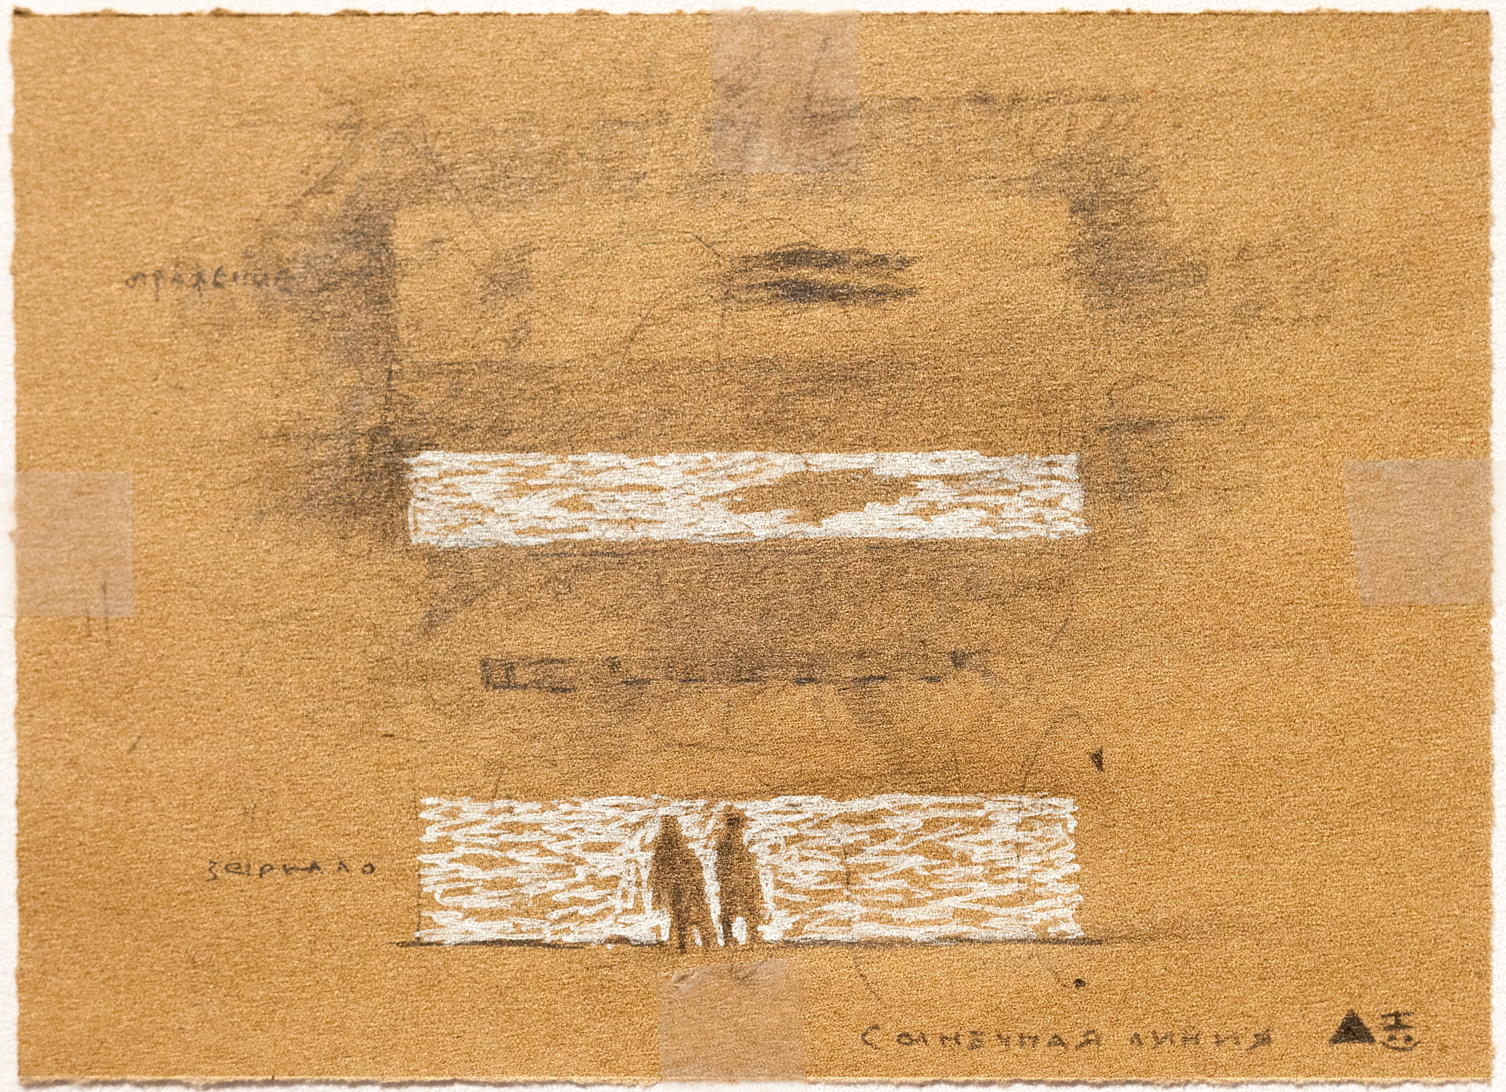 отражение
зеркало
Солнечная линия